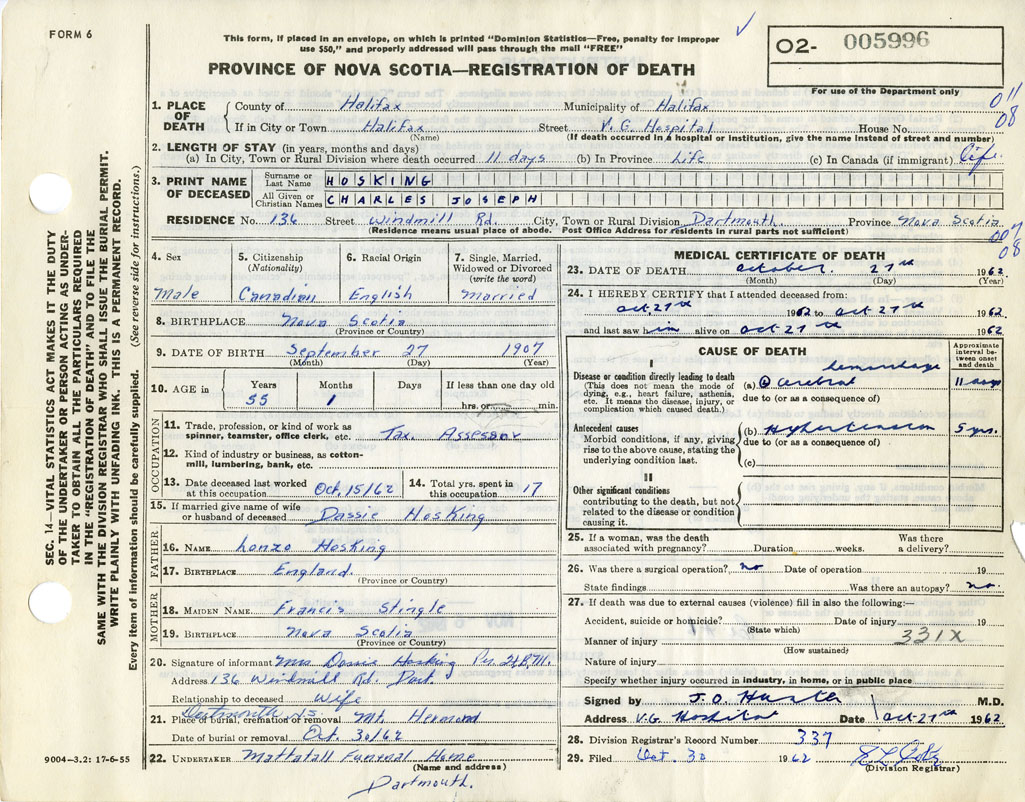 FORM 6
This form, if placed in an envelope, on which is printed "Dominion Statistics—Free, penalty for improper
use $50," and properly addressed will pass through the mail "FREE"
O2- 005996
For use of the Department only
PROVINCE OF NOVA SCOTIA—REGISTRATION OF DEATH
011
08
1. PLACE OF DEATH
County of Halifax Municipality of Halifax
If in City or Town Halifax Street V.G. Hospital House No.
(Name) (If death occurred in a hospital or institution, give the name instead of street and number)
2. LENGTH OF STAY (in years, months and days)
(a) In City, Town or Rural Division where death occurred 11 days (b) In Province Life (c) In Canada (if immigrant) Life.
3. PRINT NAME OF DECEASED
Surname or Last Name HOSKING
All Given or Christian Names CHARLES JOSEPH
RESIDENCE No. 136 Street Windmill Rd. City, Town or Rural Division Dartmouth Province Nova Scotia
(Residence means usual place of abode. Post Office Address for residents in rural parts not sufficient)
007
08
4. Sex
Male
5. Citizenship
(Nationality)
Canadian
6. Racial Origin
English
7. Single, Married,
Widowed or Divorced
(write the word)
Married
8. BIRTHPLACE Nova Scotia
(Province or Country)
9. DATE OF BIRTH September 27 1907
(Month) (Day) (Year)
10. AGE in
Years Months Days If less than one day old
55 1 hrs. or min.
OCCUPATION
11. Trade, profession, or kind of work as
spinner, teamster, office clerk, etc. Tax Assessor
12. Kind of industry or business, as cotton-
mill, lumbering, bank, etc.
13. Date deceased last worked
at this occupation Oct, 15/62
14. Total yrs. spent in
this occupation 17
15. If married give name of wife
or husband of deceased Dassie Hosking
FATHER
16. NAME Lonzo Hosking
17. BIRTHPLACE England.
(Province or Country)
MOTHER
18. MAIDEN NAME Francis Stingle
19. BIRTHPLACE Nova Scotia
(Province or Country)
20. Signature of informant Mrs Dassie Hosking Per
Address 136 Windmill Rd. Dart.
Relationship to deceased Wife
Dartmouth N.S.
21. Place of burial, cremation or removal Mt. Hermond
Date of burial or removal Oct. 30/62
22. UNDERTAKER Mattatall Funeral Home
(Name and address)
Dartmouth.
9004—3.2: 17-6-55
MEDICAL CERTIFICATE OF DEATH
23. DATE OF DEATH October. 27th 1962
(Month) (Day) (Year)
24. I HEREBY CERTIFY that I attended deceased from:
Oct-27th 1962 to Oct-27th 1962
and last saw him alive on Oct-27th 1962
CAUSE OF DEATH
Approximate
interval be-
tween onset
and death
I
Disease or condition directly leading to death
(This does not mean the mode of
dying, e.g., heart failure, asthenia,
etc. It means the disease, injury, or
complication which caused death.)
hemorrhage
(a) Cerebral 11 days
due to (or as a consequence of)
Antecedent causes
Morbid conditions, if any, giving
rise to the above cause, stating the
underlying condition last.
(b) Hypertension 5 yrs.
due to (or as a consequence of)
(c)
II
Other significant conditions
contributing to the death, but not
related to the disease or condition
causing it.
25. If a woman, was the death
associated with pregnancy? Duration weeks. Was there
a delivery?
26. Was there a surgical operation? no Date of operation 19
State findings Was there an autopsy? no.
27. If death was due to external causes (violence) fill in also the following:—
Accident, suicide or homicide? Date of injury 19
(State which)
331X
Manner of injury
(How sustained)
Nature of injury
Specify whether injury occurred in industry, in home, or in public place
Signed by J.O. M.D.
Address V.G. Hospital Date Oct-27th 1962
28. Division Registrar's Record Number 337
29. Filed Oct. 30 1962
(Division Registrar)
SEC. 14—VITAL STATISTICS ACT MAKES IT THE DUTY
OF THE UNDERTAKER OR PERSON ACTING AS UNDER-
TAKER TO OBTAIN ALL THE PARTICULARS REQUIRED
IN THE "REGISTRATION OF DEATH" AND TO FILE THE
SAME WITH THE DIVISION REGISTRAR WHO SHALL ISSUE THE BURIAL PERMIT.
WRITE PLAINLY WITH UNFADING INK. THIS IS A PERMANENT RECORD.
Every item of information should be carefully supplied. (See reverse side for instructions.)